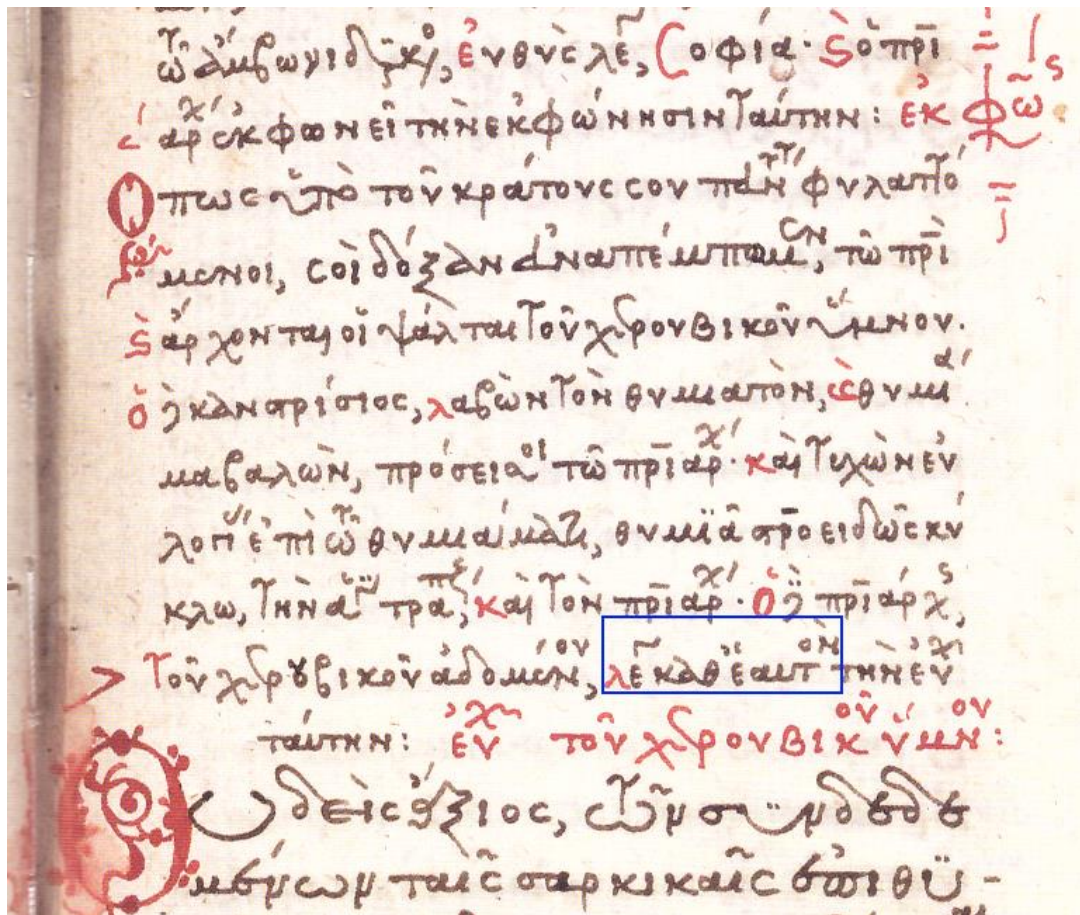 τῷ ἄμβωνι δϊακο, ἐνθὺς λέ, Σοφία· ὁ πρι
αρχ ἐκφωνεῖ τὴν ἐκφώνησιν ταύτην: ἐκφω
Ὅπως ὑπὸ τοῦ κράτους σου πάντ φυλαττό
μενοι, σοὶ δόξαν ἀναπέμπωμεν, τῷ πρὶ
ἄρχονται οἱ ψάλται τοῦ χερουβικοῦ ὕμνου.
ὁ δὲ κανστρίσιος, λαβὼν τὸν θυμιατὸν, θυμία
μα βαλὼν, πρόσεισι τῷ πρῐαρχ· καὶ τυχὼν εὐ
λογί ἐπὶ τῷ θυμιάματι, θυμϊᾶ σπροειδῶς κύ
κλω, τὴν ἁγ τράπεζ, καὶ τὸν πρῐαρχ· ὁ δὲ πρῐάρχ,
τοῦ χερουβικοῦ ἀδομένου, λέ καθ ἑαυτὸν τὴν εὐχ
ταύτην: εὐχ τοῦ χερουβικοῦ ὕμνου:
Οὐδεὶς ἄξιος, τῶν συνδεδε
μένων ταῖς σαρκικαῖς ἐπιθυ-